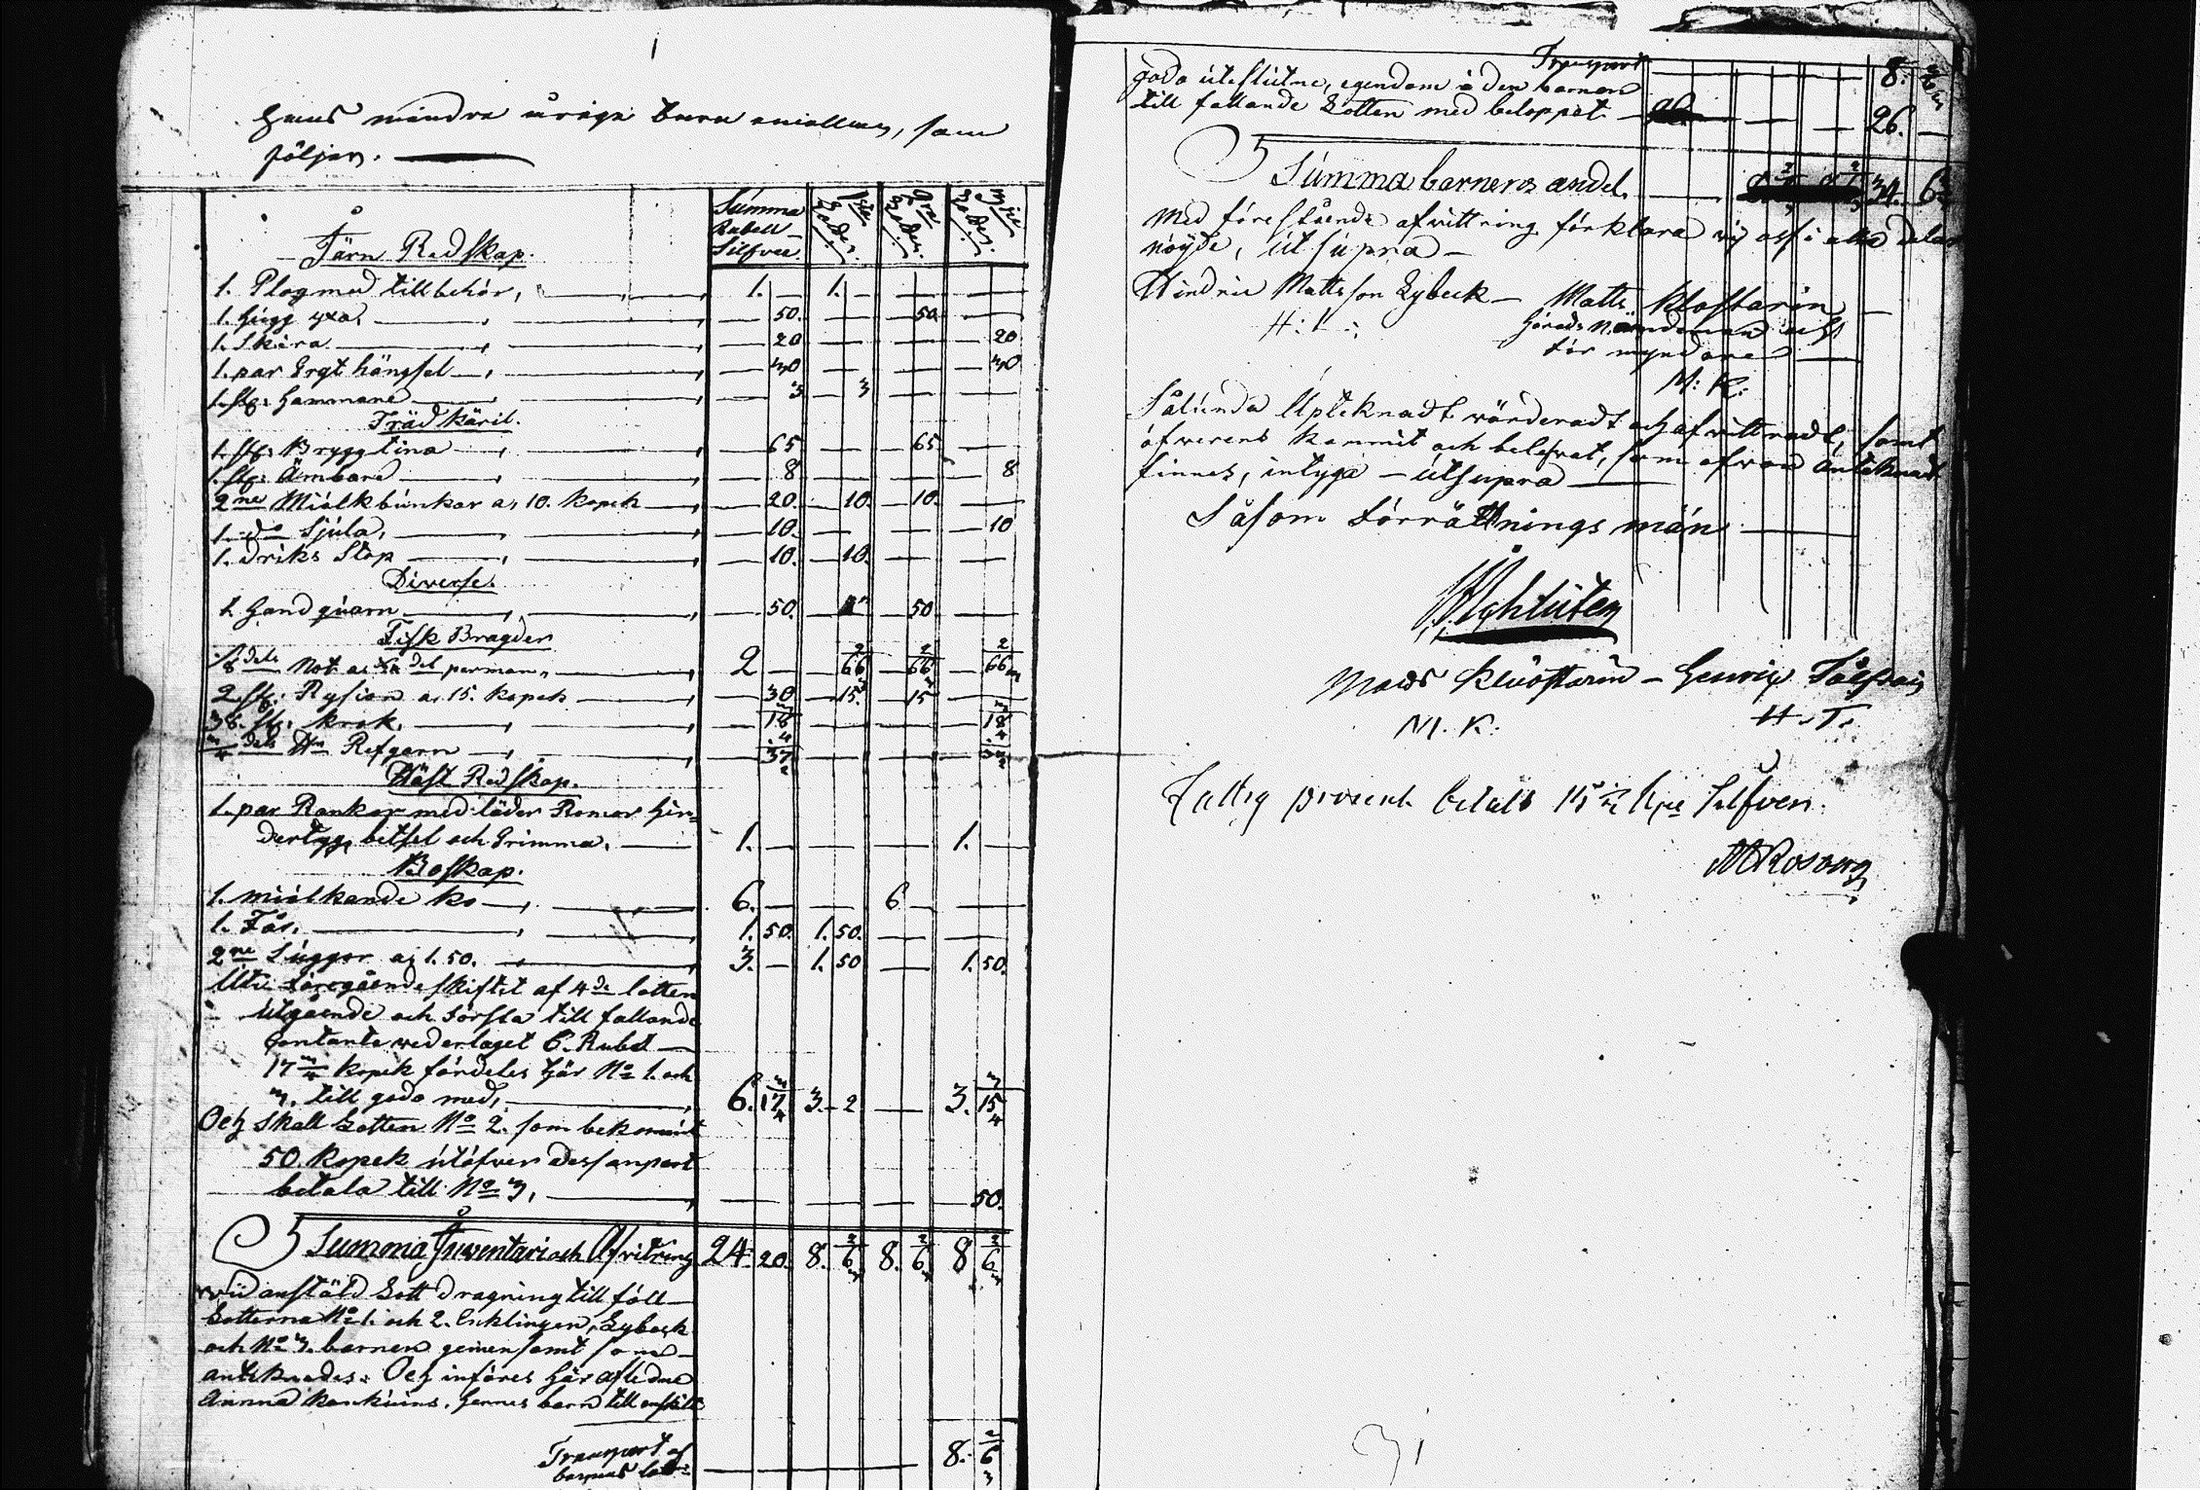 hans mindre åriga barn emellan, som
följer.
Summa Rubell Silfver. 1sta Lotten. 2dra Lotten. 3die Lotten.
Järn Redskap.
1. Plog med tillbehör, 1. — 1. —
1. hugg yxa, 50. 50.
1. Skära 20 20
1. par Ergt hängsel 30 30
1. st: hammare 3 3
Träd Käril.
1. st: Brygg tina 65 65
1. st: Ämbare 8 8
2ne Miölkbunkar a, 10. kopek 20. 10. 10.
1. do Sjula, 10. 10
1. driks Stop 10. 10.
Diverse.
1. hand quarn 50. 50
Fisk Bragder
Not 2 — 66 2/3 66 2/3 66 2/3
2. st: Rysior a, 15. kopek 30 15. 15
38. st: krok,
Refgarn
Häst Redskap.
1. par Rankor med läder Remar hin=
dertyg, betsel och Grimma, 1. — 1. —
Boskap.
1. miölkande ko 6. — 6 —
1. Får, 1. 50. 1. 50.
2ne Suggor a, 1. 50. 3. — 1. 50 1. 50.
Uti föregående skiftet af 4de lotten
utgående och första till fallande
Contante vederlaget 6. Rubel
17 3/4 kopek fördeles här No 1. och
3. till godo med, 6. 17 3/4 3. 2 3. 15 3/4
Och skall Lotten No 2. som bekommit
50. Kopek utöfver dess anpart
betala till No 3, 50.
Summa Inventari och Afvitring 24. 20. 8. 6 2/3 8. 6 2/3 8 6 2/3
vid anstäld Lott dragning till föll
Lotterna No 1. och 2. Enklingen Lybeck
och No 3. barnen gemensamt som
anteknades. Och införes här afledne
Anna hennes barn till
Transport af
barnens lott 8. 6 2/3
Transport 8. 6 2/3
godo uteslutne, egendom å den barnen
till fallande Lotten med beloppet 26. —
Summa barnens andel. 34. 6 2/3
Med förestående afvittring förklara vij oss i alla delar
nöyde, ut supra —
Hindric Mattsson Lybeck — Matts Klostarin
H: L: härads Nämdeman och
för myndare
M: K:
Sålunda Upteknadt värderadt och afvittradt, samt
öfverens kommit och belefvat, som ofvan anteknadt
finnes, intyga — ut supra
Såsom förrättnings män
Mats Kluostarin — Henrix
M. K. H. T.
Fattig procent betalt 15 Kpe Silfver.